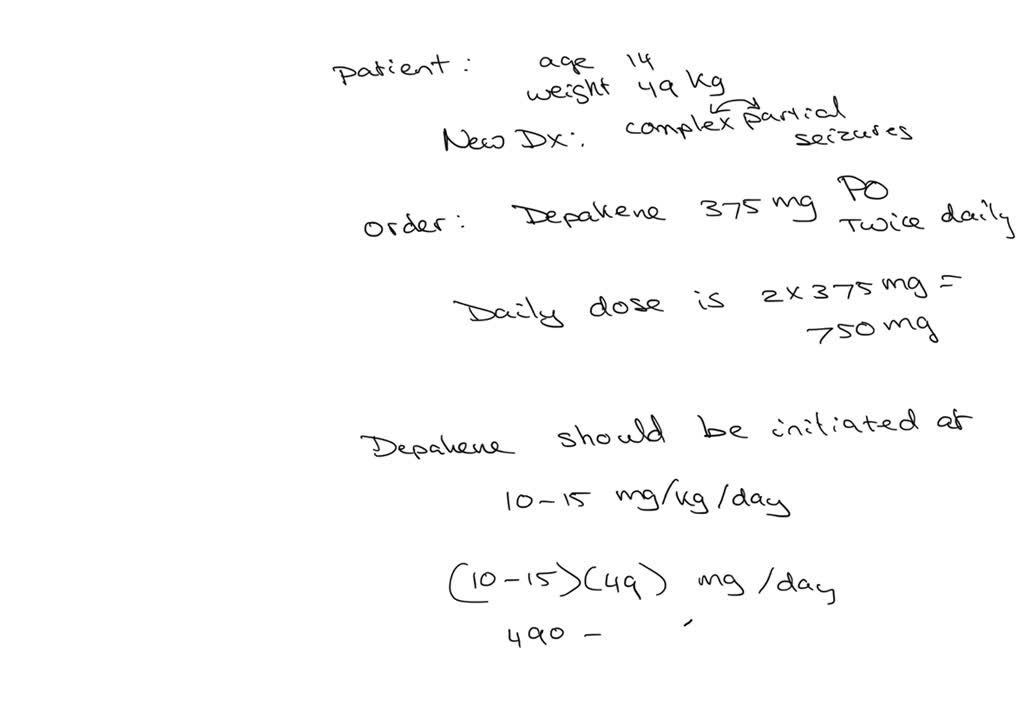 patient: age 14
weight 49 kg
New Dx: complex partial
seizures
order: Depakene 375 mg PO
Twice daily
Daily dose is 2 x 375 mg =
750 mg
Depakene should be initiated at
10-15 mg/kg/day
(10-15)(49) mg/day
490 -